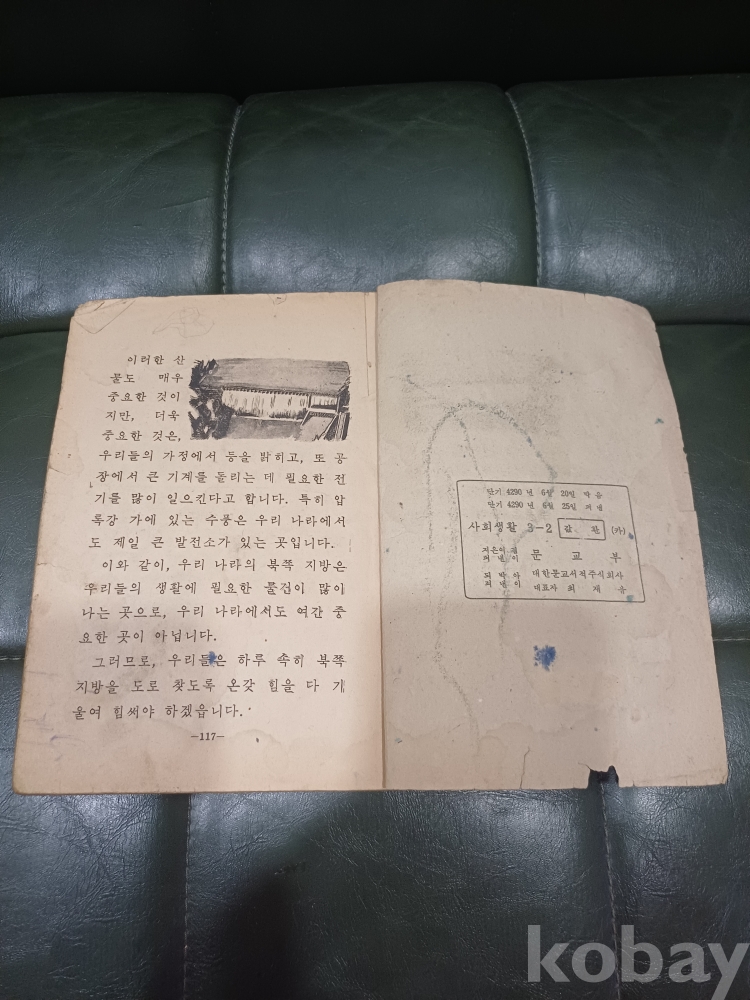 이러한 산
물도 매우
중요한 것이
지만, 더욱
중요한 것은,
우리들의 가정에서 등을 밝히고, 또 공
장에서 큰 기계를 돌리는 데 필요한 전
기를 많이 일으킨다고 합니다. 특히 압
록강 가에 있는 수풍은 우리 나라에서
도 제일 큰 발전소가 있는 곳입니다.
이와 같이, 우리 나라의 북쪽 지방은
우리들의 생활에 필요한 물건이 많이
나는 곳으로, 우리 나라에서도 여간 중
요한 곳이 아닙니다.
그러므로, 우리들은 하루 속히 북쪽
지방을 도로 찾도록 온갖 힘을 다 기
울여 힘써야 하겠읍니다.
—117—
단기 4290 년 6월 20일 박음
단기 4290 년 6월 25일 펴냄
사회생활 3-2 (카)
지은이 겸
펴낸이 문교부
펴낸이 대한문교서적주식회사
대표자 최
kobay